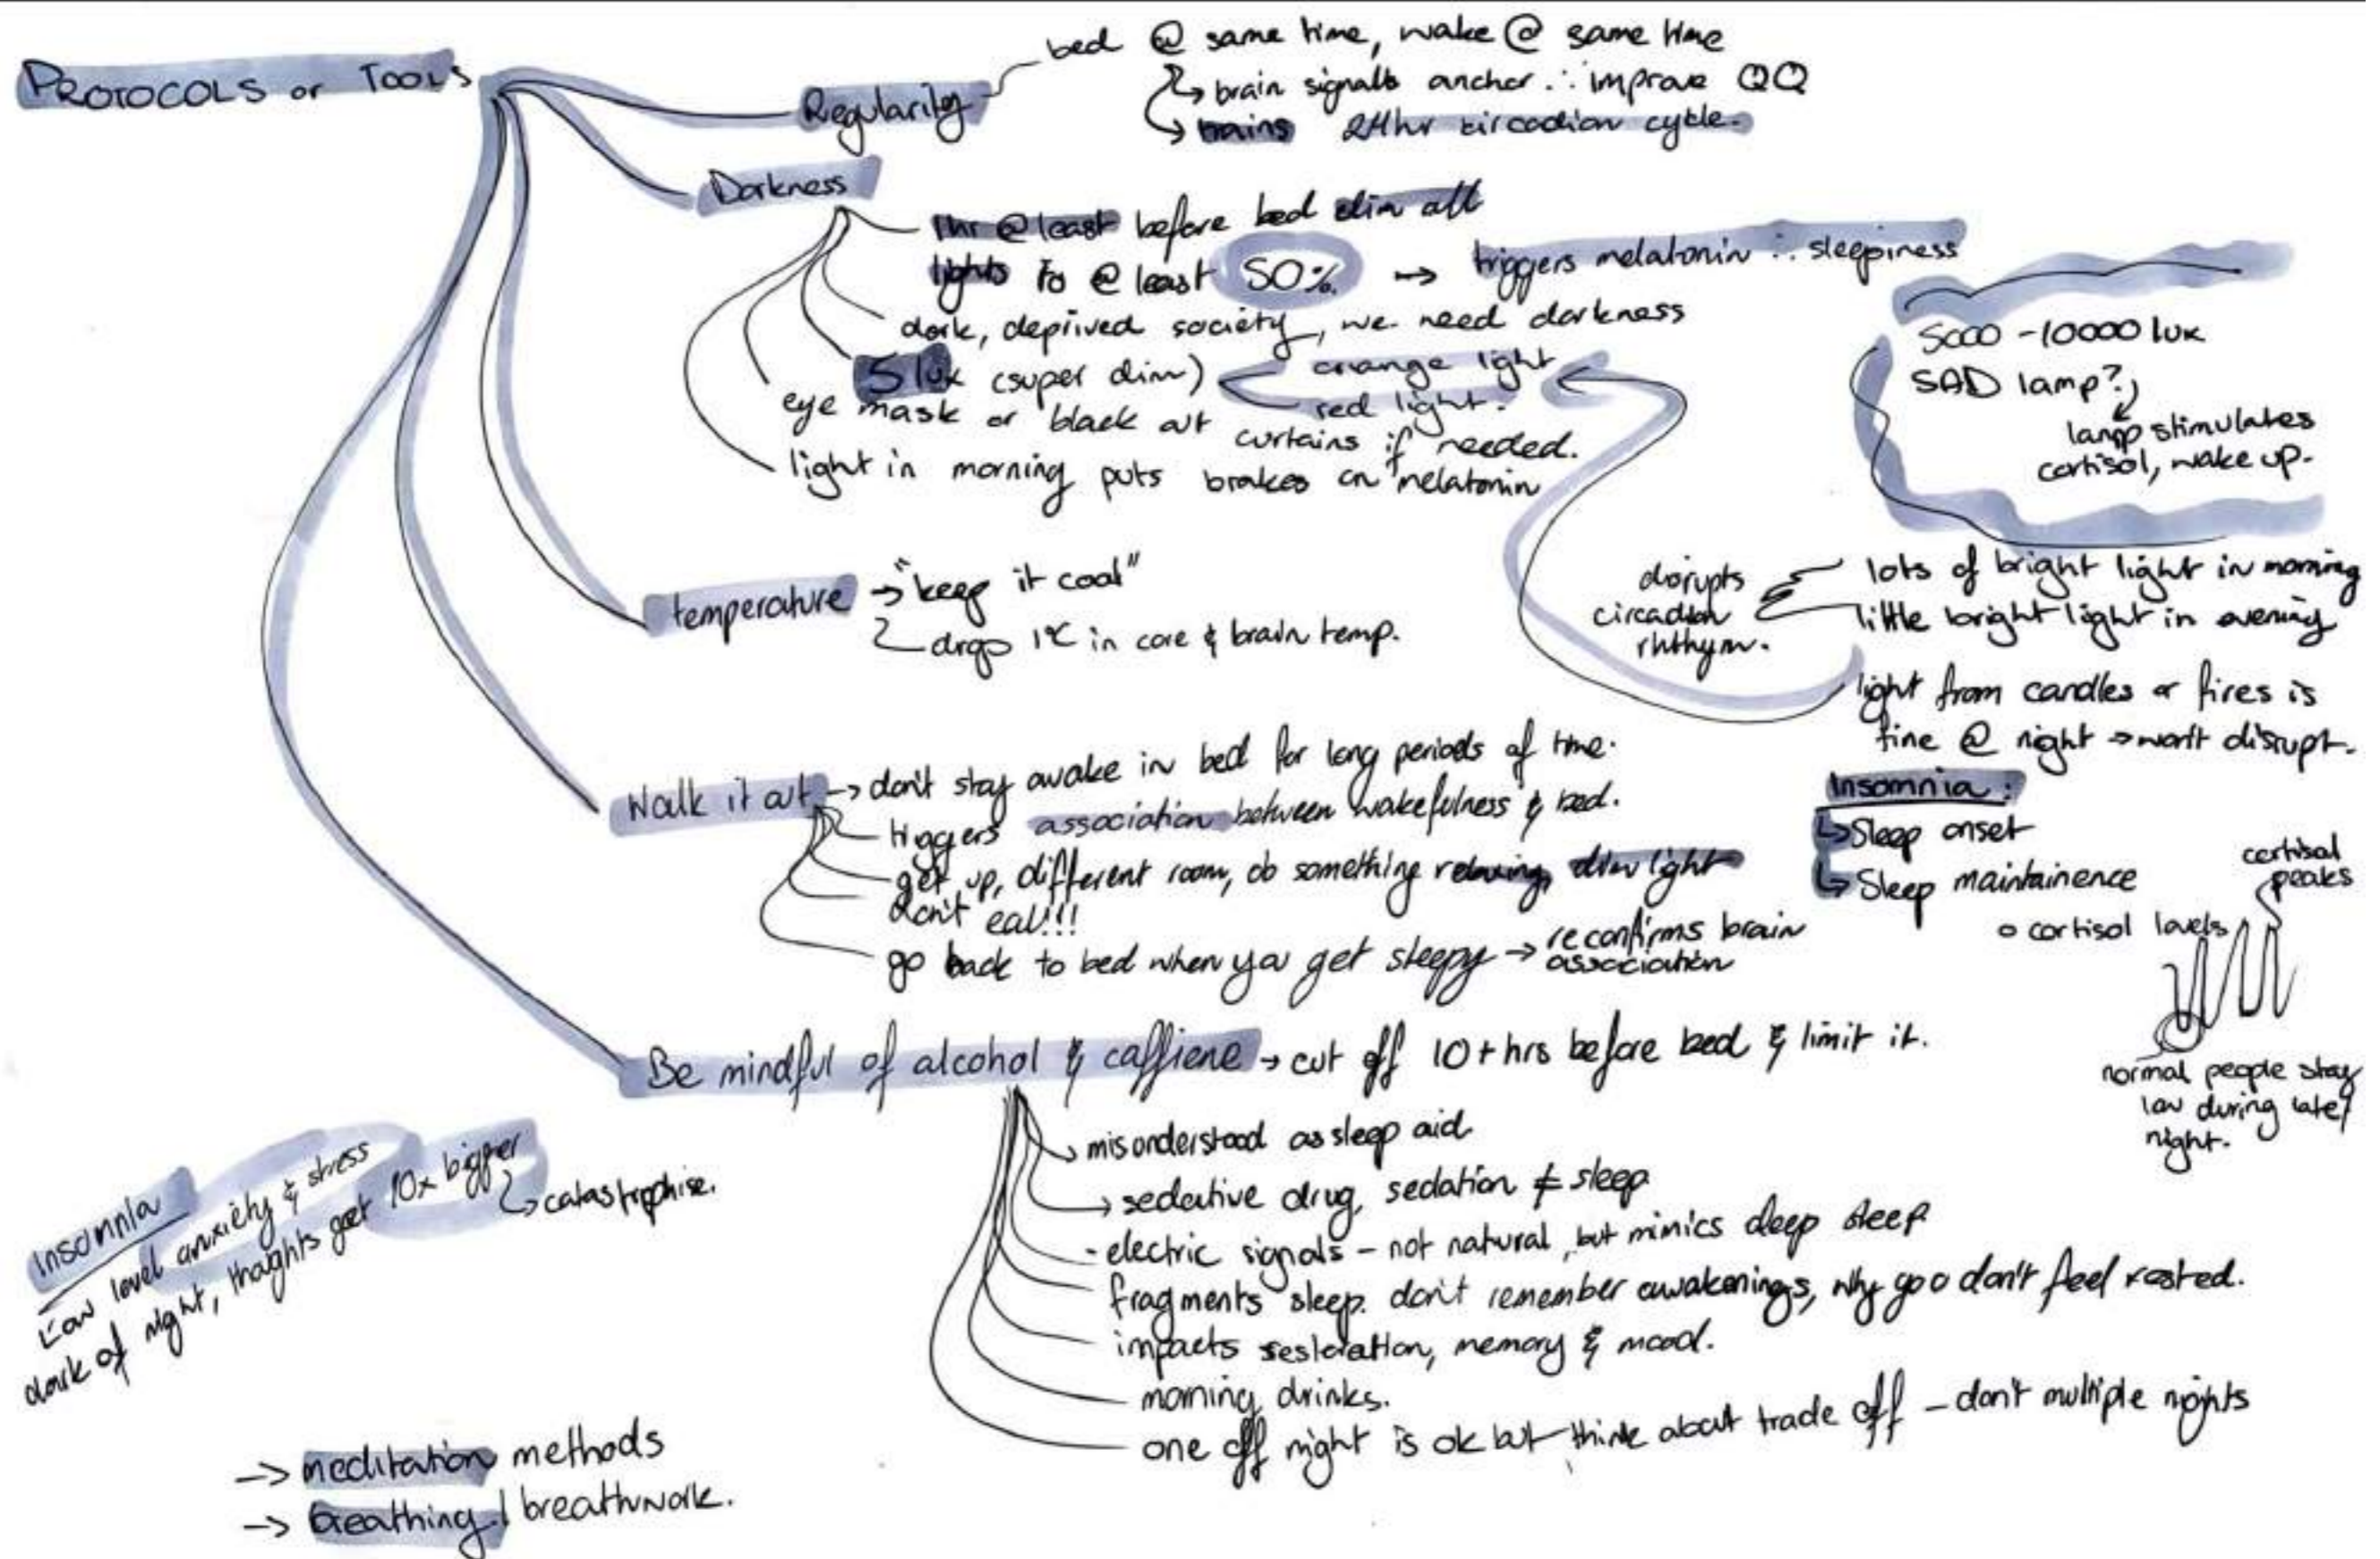 PROTOCOLS or TOOLS
Regularity
bed @ same time, wake @ same time
brain signalls anchor ∴ improve QQ
trains 24hr circadian cycle.
Darkness
1hr @ least before bed dim all
lights to @ least 50% → triggers melatonin ∴ sleepiness
dark, deprived society, we need darkness
5 lux (super dim)
orange light
red light.
eye mask or black out curtains if needed.
light in morning puts brakes on melatonin
5000 - 10000 lux
SAD lamp?
lamp stimulates
cortisol, wake up.
disrupts
circadian
rhthym.
lots of bright light in morning
little bright light in evening
light from candles or fires is
fine @ night → won't disrupt.
temperature → "keep it cool"
drop 1°C in core & brain temp.
Walk it out → don't stay awake in bed for long periods of time.
triggers association between wakefulness & bed.
get up, different room, do something relaxing, dim light
don't eat!!!
go back to bed when you get sleepy → reconfirms brain
association
Insomnia:
Sleep onset
Sleep maintainence
cortisol
peaks
cortisol levels
normal people stay
low during late/
night.
Be mindful of alcohol & caffiene → cut off 10+hrs before bed & limit it.
misunderstood as sleep aid
sedative drug, sedation ≠ sleep
- electric signals - not natural, but mimics deep sleep
fragments sleep. don't remember awakenings, why you don't feel rested.
impacts restoration, memory & mood.
morning drinks.
one off night is ok but think about trade off - don't multiple nights
Insomnia
Low level anxiety & stress
dark of night, thoughts get 10x bigger
catastrophise.
→ meditation methods
→ breathing / breathwork.